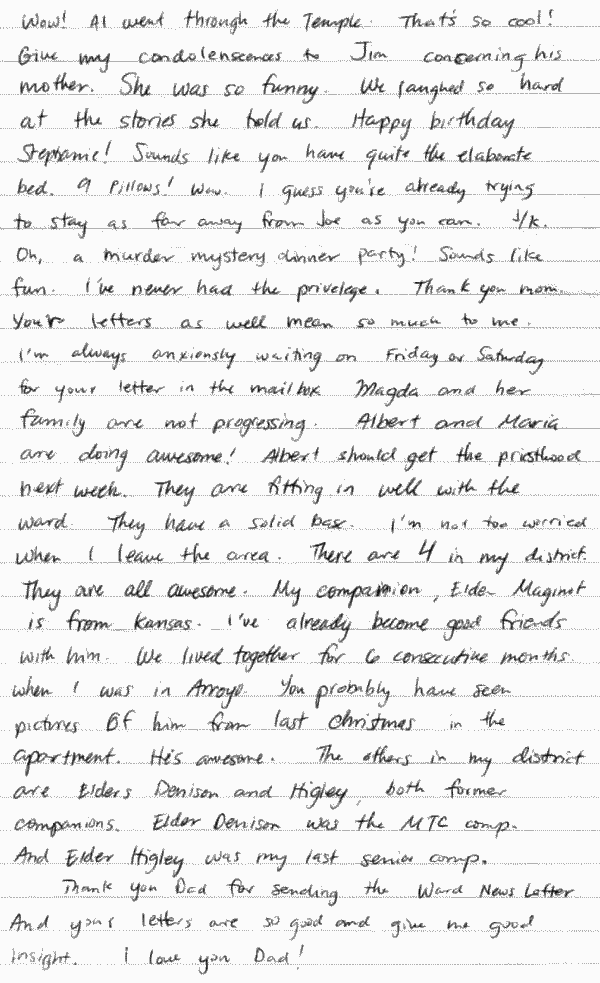 Wow! Al went through the Temple. That's so cool!
Give my condolenscences to Jim concerning his
mother. She was so funny. We laughed so hard
at the stories she told us. Happy birthday
Stephanie! Sounds like you have quite the elaborate
bed. 9 Pillows! Wow. I guess you're already trying
to stay as far away from Joe as you can. J/K.
Oh, a murder mystery dinner party! Sounds like
fun. I've never had the privelege. Thank you mom.
Your letters as well mean so much to me.
I'm always anxiously waiting on Friday or Saturday
for your letter in the mailbox. Magda and her
family are not progressing. Albert and Maria
are doing awesome! Albert should get the priesthood
next week. They are fitting in well with the
ward. They have a solid base. I'm not too worried
when I leave the area. There are 4 in my district.
They are all awesome. My companion, Elder Maginot
is from Kansas. I've already become good friends
with him. We lived together for 6 consecutive months
when I was in Arroyo. You probably have seen
pictures of him from last christmas in the
apartment. He's awesome. The others in my district
are Elders Denison and Higley, both former
companions. Elder Denison was the MTC comp.
And Elder Higley was my last senior comp.
Thank you Dad for sending the Ward News Letter
And yours letters are so good and give me good
insight. I love you Dad!